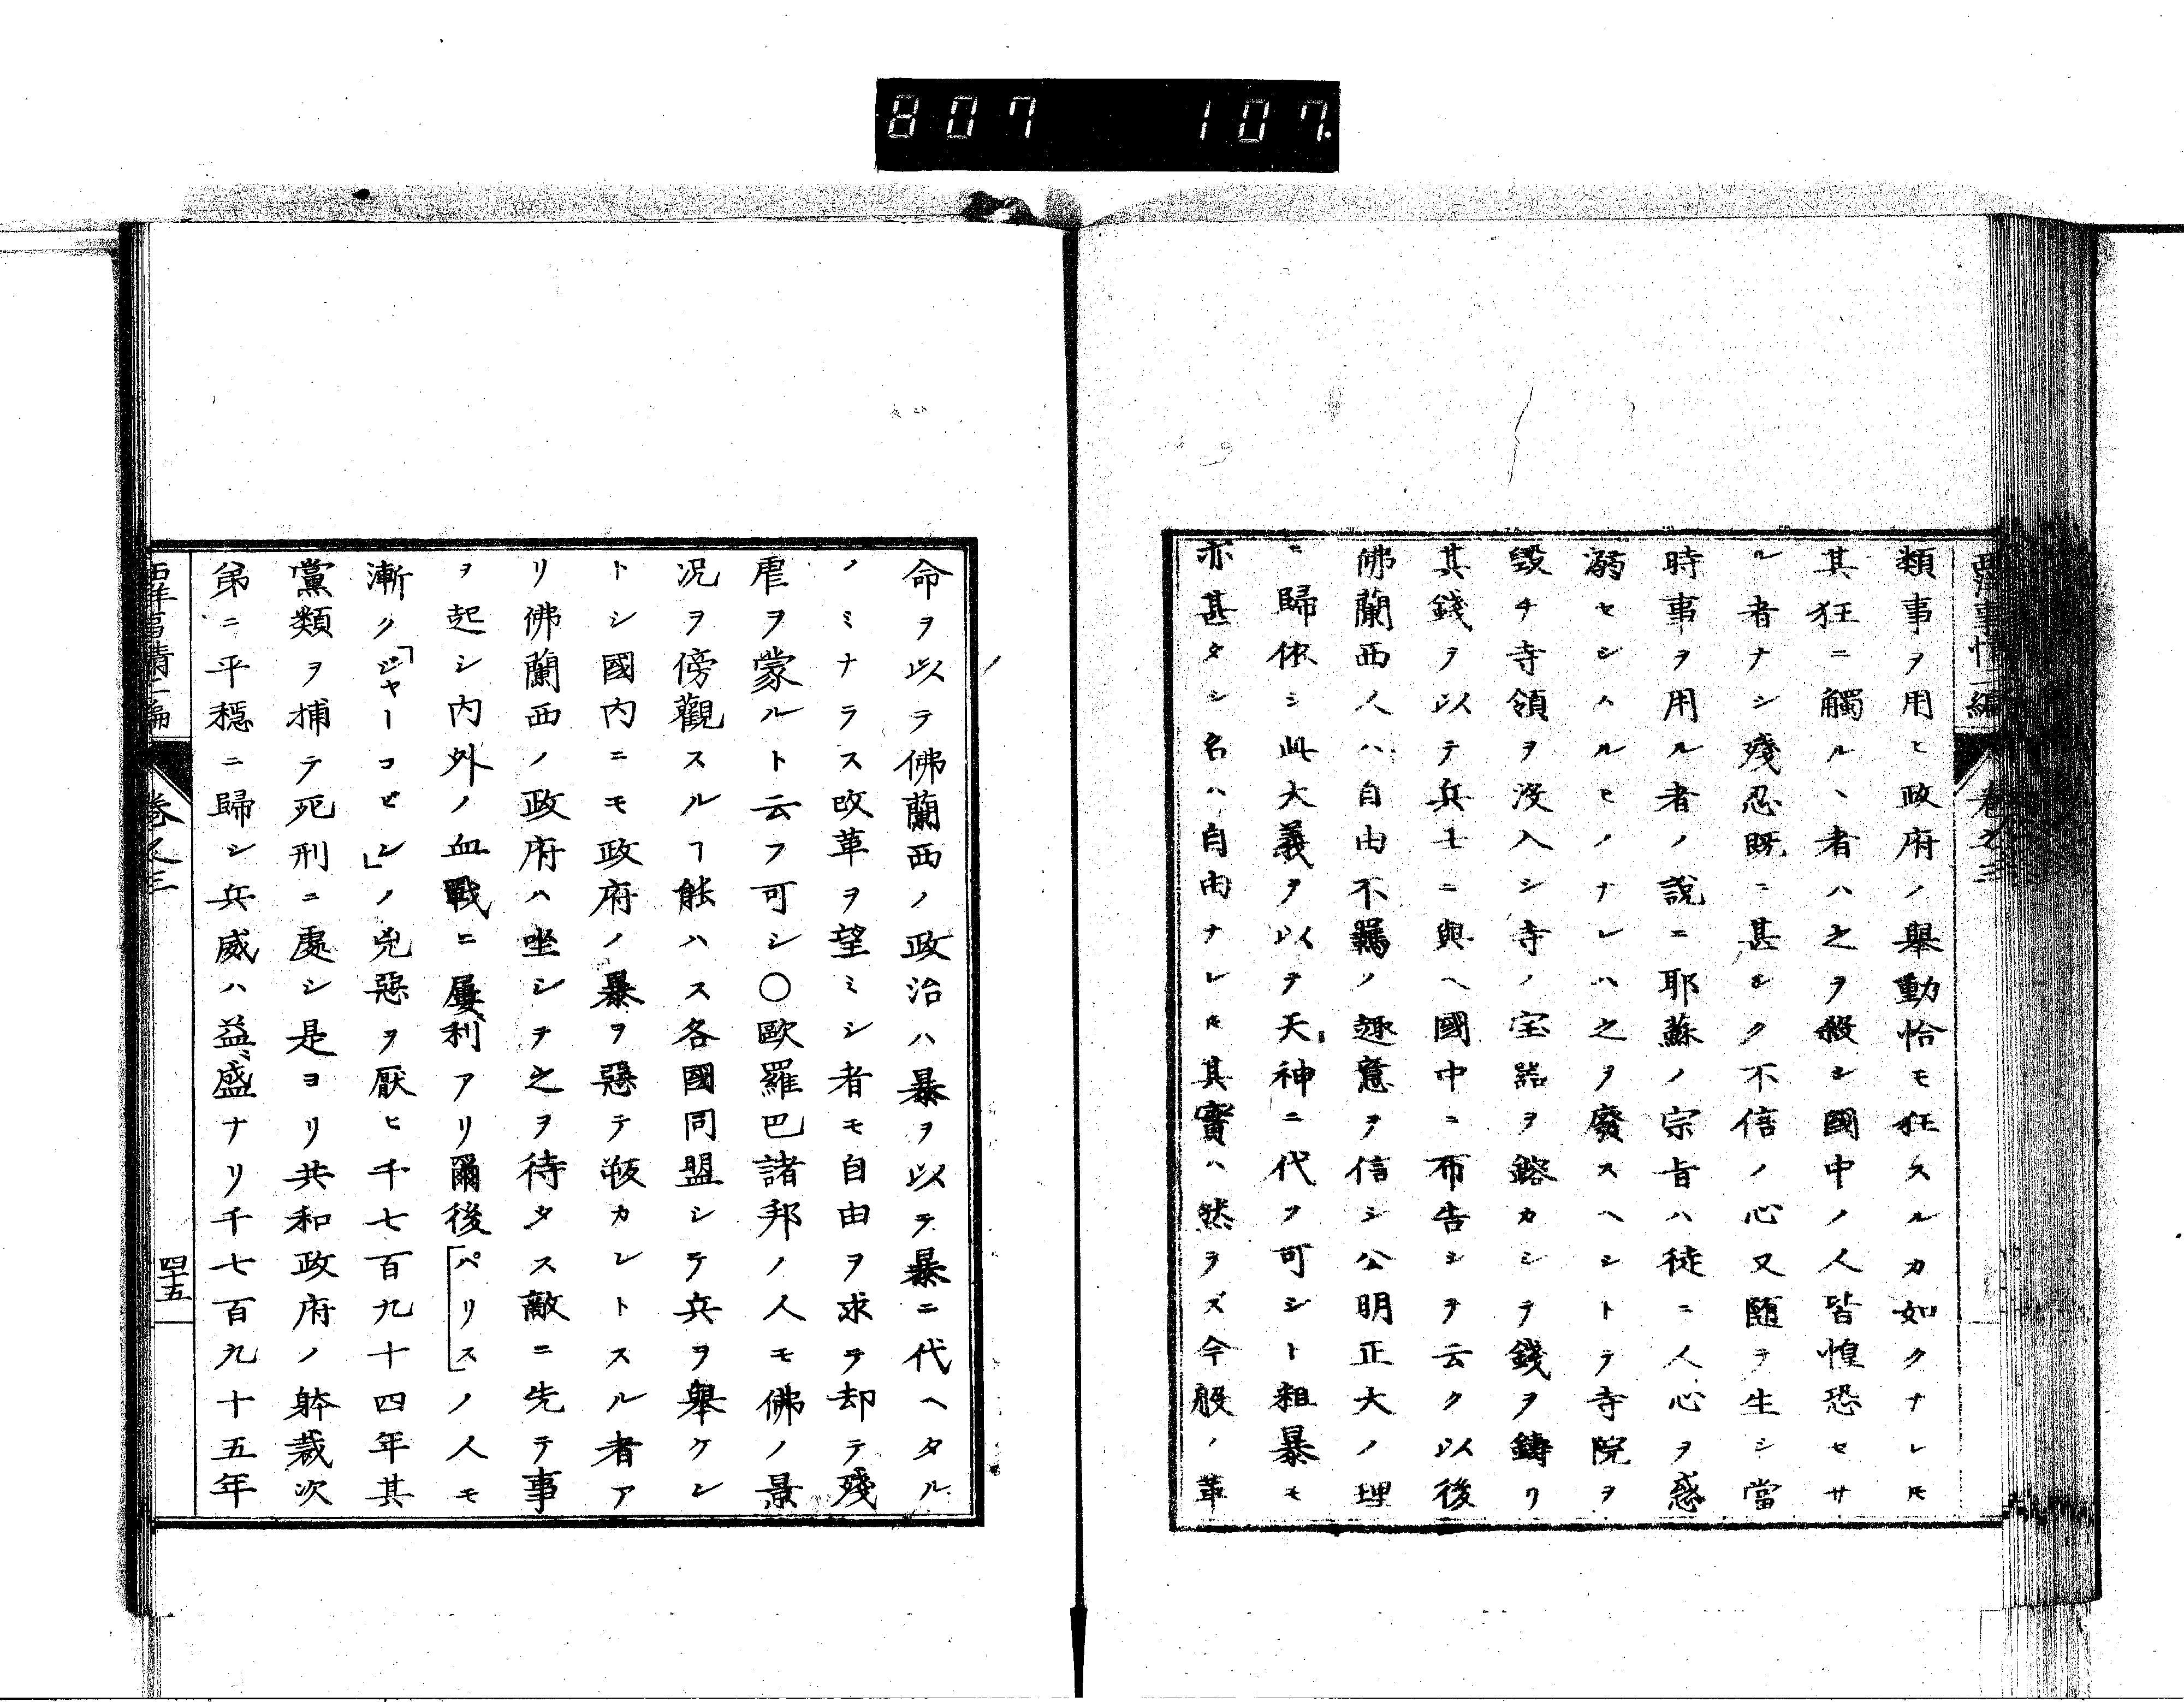 807 107.
西洋事情二編 卷之三
類事ヲ用ヒ政府ノ舉動恰モ狂スルカ如クナレ𪜈
其狂ニ觸ルヽ者ハ之ヲ殺シ國中ノ人皆惶恐セサ
ル者ナシ殘忍既ニ甚シク不信ノ心又随テ生シ當
時事ヲ用ル者ノ說ニ耶蘇ノ宗旨ハ徒ニ人心ヲ惑
溺セシムルモノナレハ之ヲ廢スヘシトテ寺院ヲ
毀チ寺領ヲ没入シ寺ノ宝器ヲ鎔カシテ錢ヲ鑄リ
其錢ヲ以テ兵士ニ與ヘ國中ニ布告シヲ云ク以後
佛蘭西人ハ自由不羈ノ趣意ヲ信シ公明正大ノ理
ニ歸依シ此大義ヲ以テ天神ニ代フ可シト粗暴モ
亦甚タシ名ハ自由ナレ𪜈其實ハ然ラズ今般ノ革
命ヲ以テ佛蘭西ノ政治ハ暴ヲ以テ暴ニ代ヘタル
ノミナラス改革ヲ望ミシ者モ自由ヲ求テ却テ殘
虐ヲ蒙ルト云フ可シ〇歐羅巴諸邦ノ人モ佛ノ景
況ヲ傍觀スルヿ能ハス各國同盟シテ兵ヲ舉ケン
トシ國內ニモ政府ノ暴ヲ惡テ叛カントスル者ア
リ佛蘭西ノ政府ハ坐シヲ之ヲ待タス敵ニ先テ事
ヲ起シ内外ノ血戰ニ屢利アリ爾後「パリス」ノ人モ
漸ク「ジャーコビン」ノ兇惡ヲ厭ヒ千七百九十四年其
黨類ヲ捕テ死刑ニ處シ是ヨリ共和政府ノ躰裁次
第ニ平穩ニ歸シ兵威ハ益盛ナリ千七百九十五年
西洋事情二編 卷之三 四十五